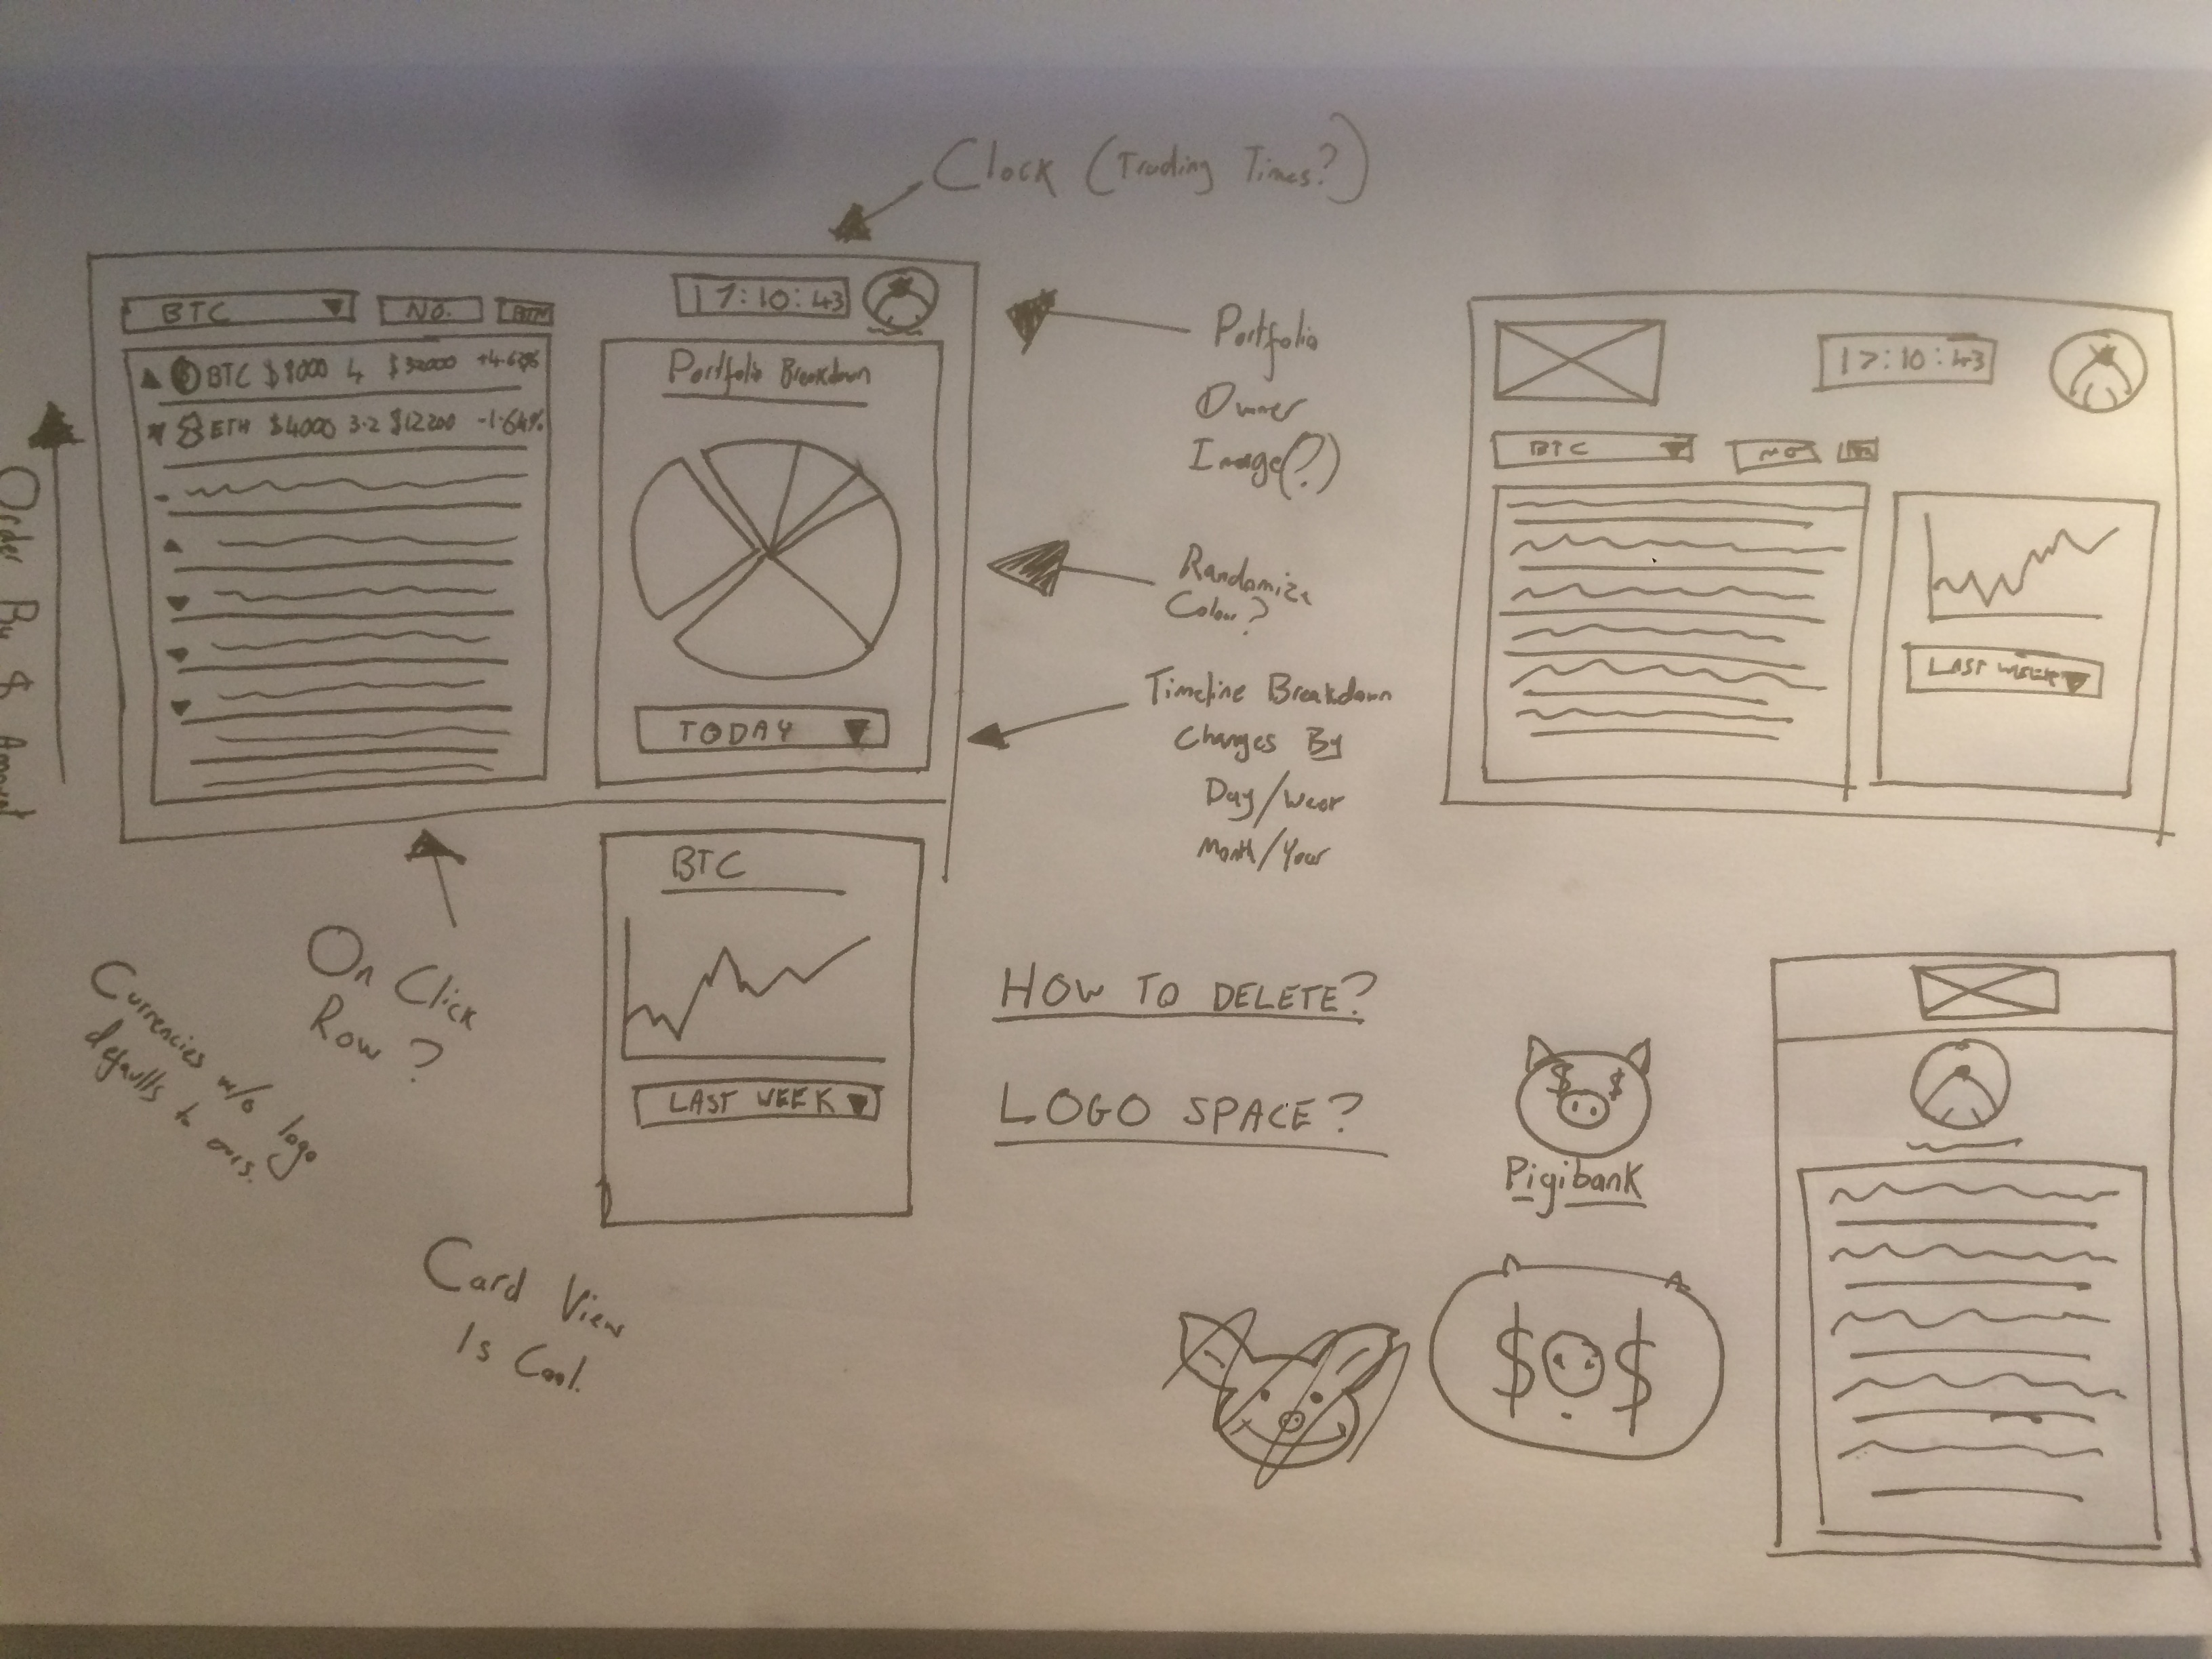 Clock (Trading Times?)
BTC
No.
17:10:43
BTC $8000 4 $32000
ETH $4000 3.2 $12200 -1.64%
Portfolio Breakdown
TODAY
Order By $ Amount
Portfolio
Owner
Image(?)
Randomize
Colour?
Timeline Breakdown
Changes By
Day/
Month/Year
BTC
No
17:10:43
LAST
On Click
Row?
Currencies w/o logo
defaults to ours.
BTC
LAST WEEK
Card View
Is Cool.
HOW TO DELETE?
LOGO SPACE?
$ $
Pigibank
$ $